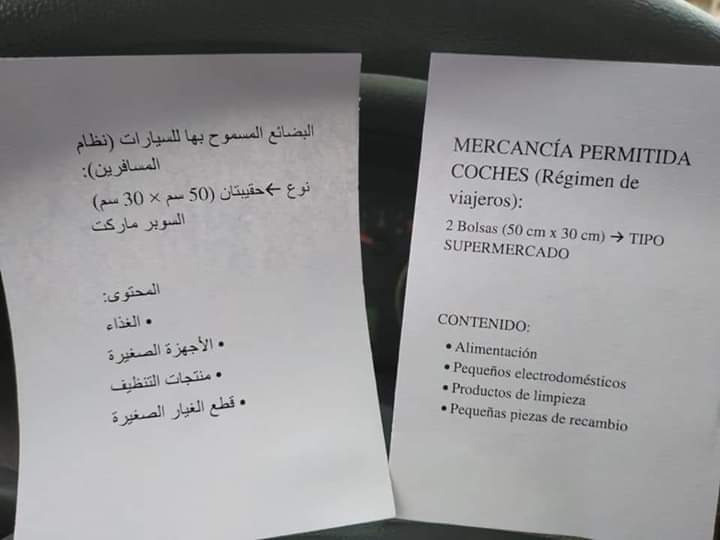 البضائع المسموح بها للسيارات (نظام
المسافرين):
نوع ←حقيبتان (50 سم × 30 سم)
السوبر ماركت
المحتوى:
• الغذاء
• الأجهزة الصغيرة
• منتجات التنظيف
• قطع الغيار الصغيرة
MERCANCÍA PERMITIDA
COCHES (Régimen de
viajeros):
2 Bolsas (50 cm x 30 cm) → TIPO
SUPERMERCADO
CONTENIDO:
• Alimentación
• Pequeños electrodomésticos
• Productos de limpieza
• Pequeñas piezas de recambio